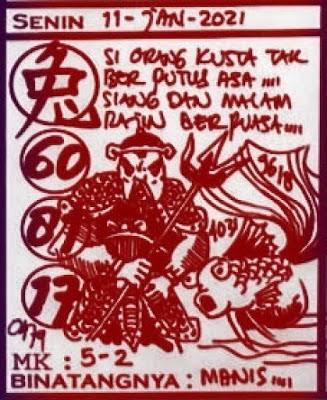 SENIN 11-JAN-2021
SI ORANG KUSTA TAK
BER PUTUS ASA....
SIANG DAN MALAM
RAJIN BERPUASA....
兔
60
81
17
9618
4031
0479
MK : 5-2
BINATANGNYA : MANIS....